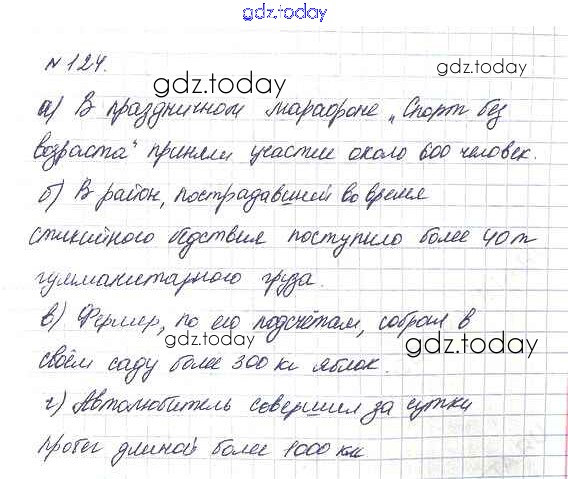 gdz.today
№ 124.
gdz.today
gdz.today
а) В праздничном марафоне „Спорт без
возраста“ приняли участие около 600 человек.
б) В район, пострадавший во время
стихийного бедствия поступило более 40 т
гумманитарного груза.
в) Фермер, по его подсчётам, собрал в
gdz.today
gdz.today
своём саду более 300 кг яблок.
г) Автолюбитель совершил за сутки
пробег длиной более 1000 км